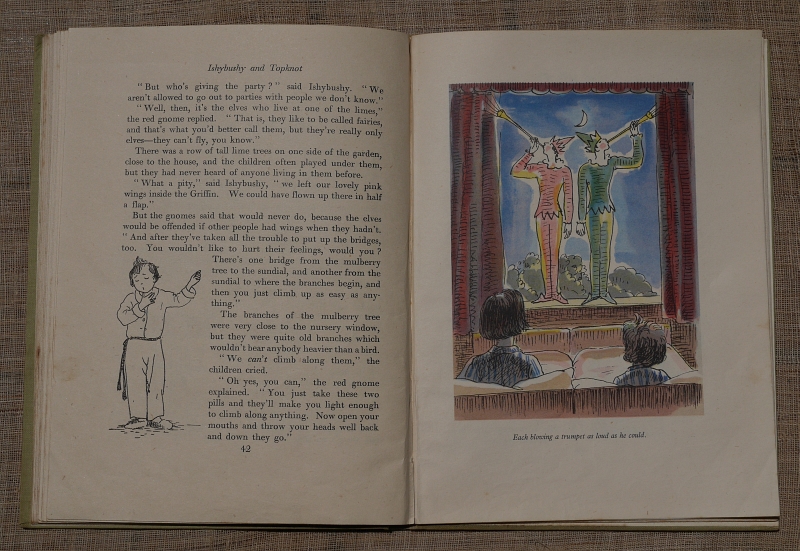 Ishybushy and Topknot
"But who's giving the party?" said Ishybushy. "We
aren't allowed to go out to parties with people we don't know."
"Well, then, it's the elves who live at one of the limes,"
the red gnome replied. "That is, they like to be called fairies,
and that's what you'd better call them, but they're really only
elves—they can't fly, you know."
There was a row of tall lime trees on one side of the garden,
close to the house, and the children often played under them,
but they had never heard of anyone living in them before.
"What a pity," said Ishybushy, "we left our lovely pink
wings inside the Griffin. We could have flown up there in half
a flap."
But the gnomes said that would never do, because the elves
would be offended if other people had wings when they hadn't.
"And after they've taken all the trouble to put up the bridges,
too. You wouldn't like to hurt their feelings, would you?
There's one bridge from the mulberry
tree to the sundial, and another from the
sundial to where the branches begin, and
then you just climb up as easy as any-
thing."
The branches of the mulberry tree
were very close to the nursery window,
but they were quite old branches which
wouldn't bear anybody heavier than a bird.
"We can't climb along them," the
children cried.
"Oh yes, you can," the red gnome
explained. "You just take these two
pills and they'll make you light enough
to climb along anything. Now open your
mouths and throw your heads well back
and down they go."
42
Each blowing a trumpet as loud as he could.